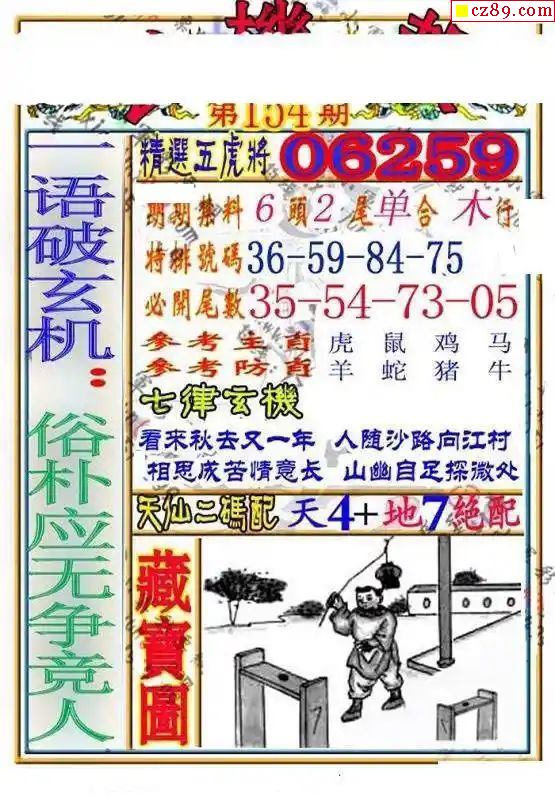 cz89.com
第154期
一语破玄机：
俗朴应无争竞人
精選五虎將 06259
期期禁料 6頭2尾单合 木行
特排號碼 36-59-84-75
必開尾數 35-54-73-05
參考主肖 虎 鼠 鸡 马
參考防肖 羊 蛇 猪 牛
七律玄機
看来秋去又一年 人随沙路向江村
相思成苦情意长 山幽自足探微处
天仙二碼配 天4+地7絕配
藏寶圖